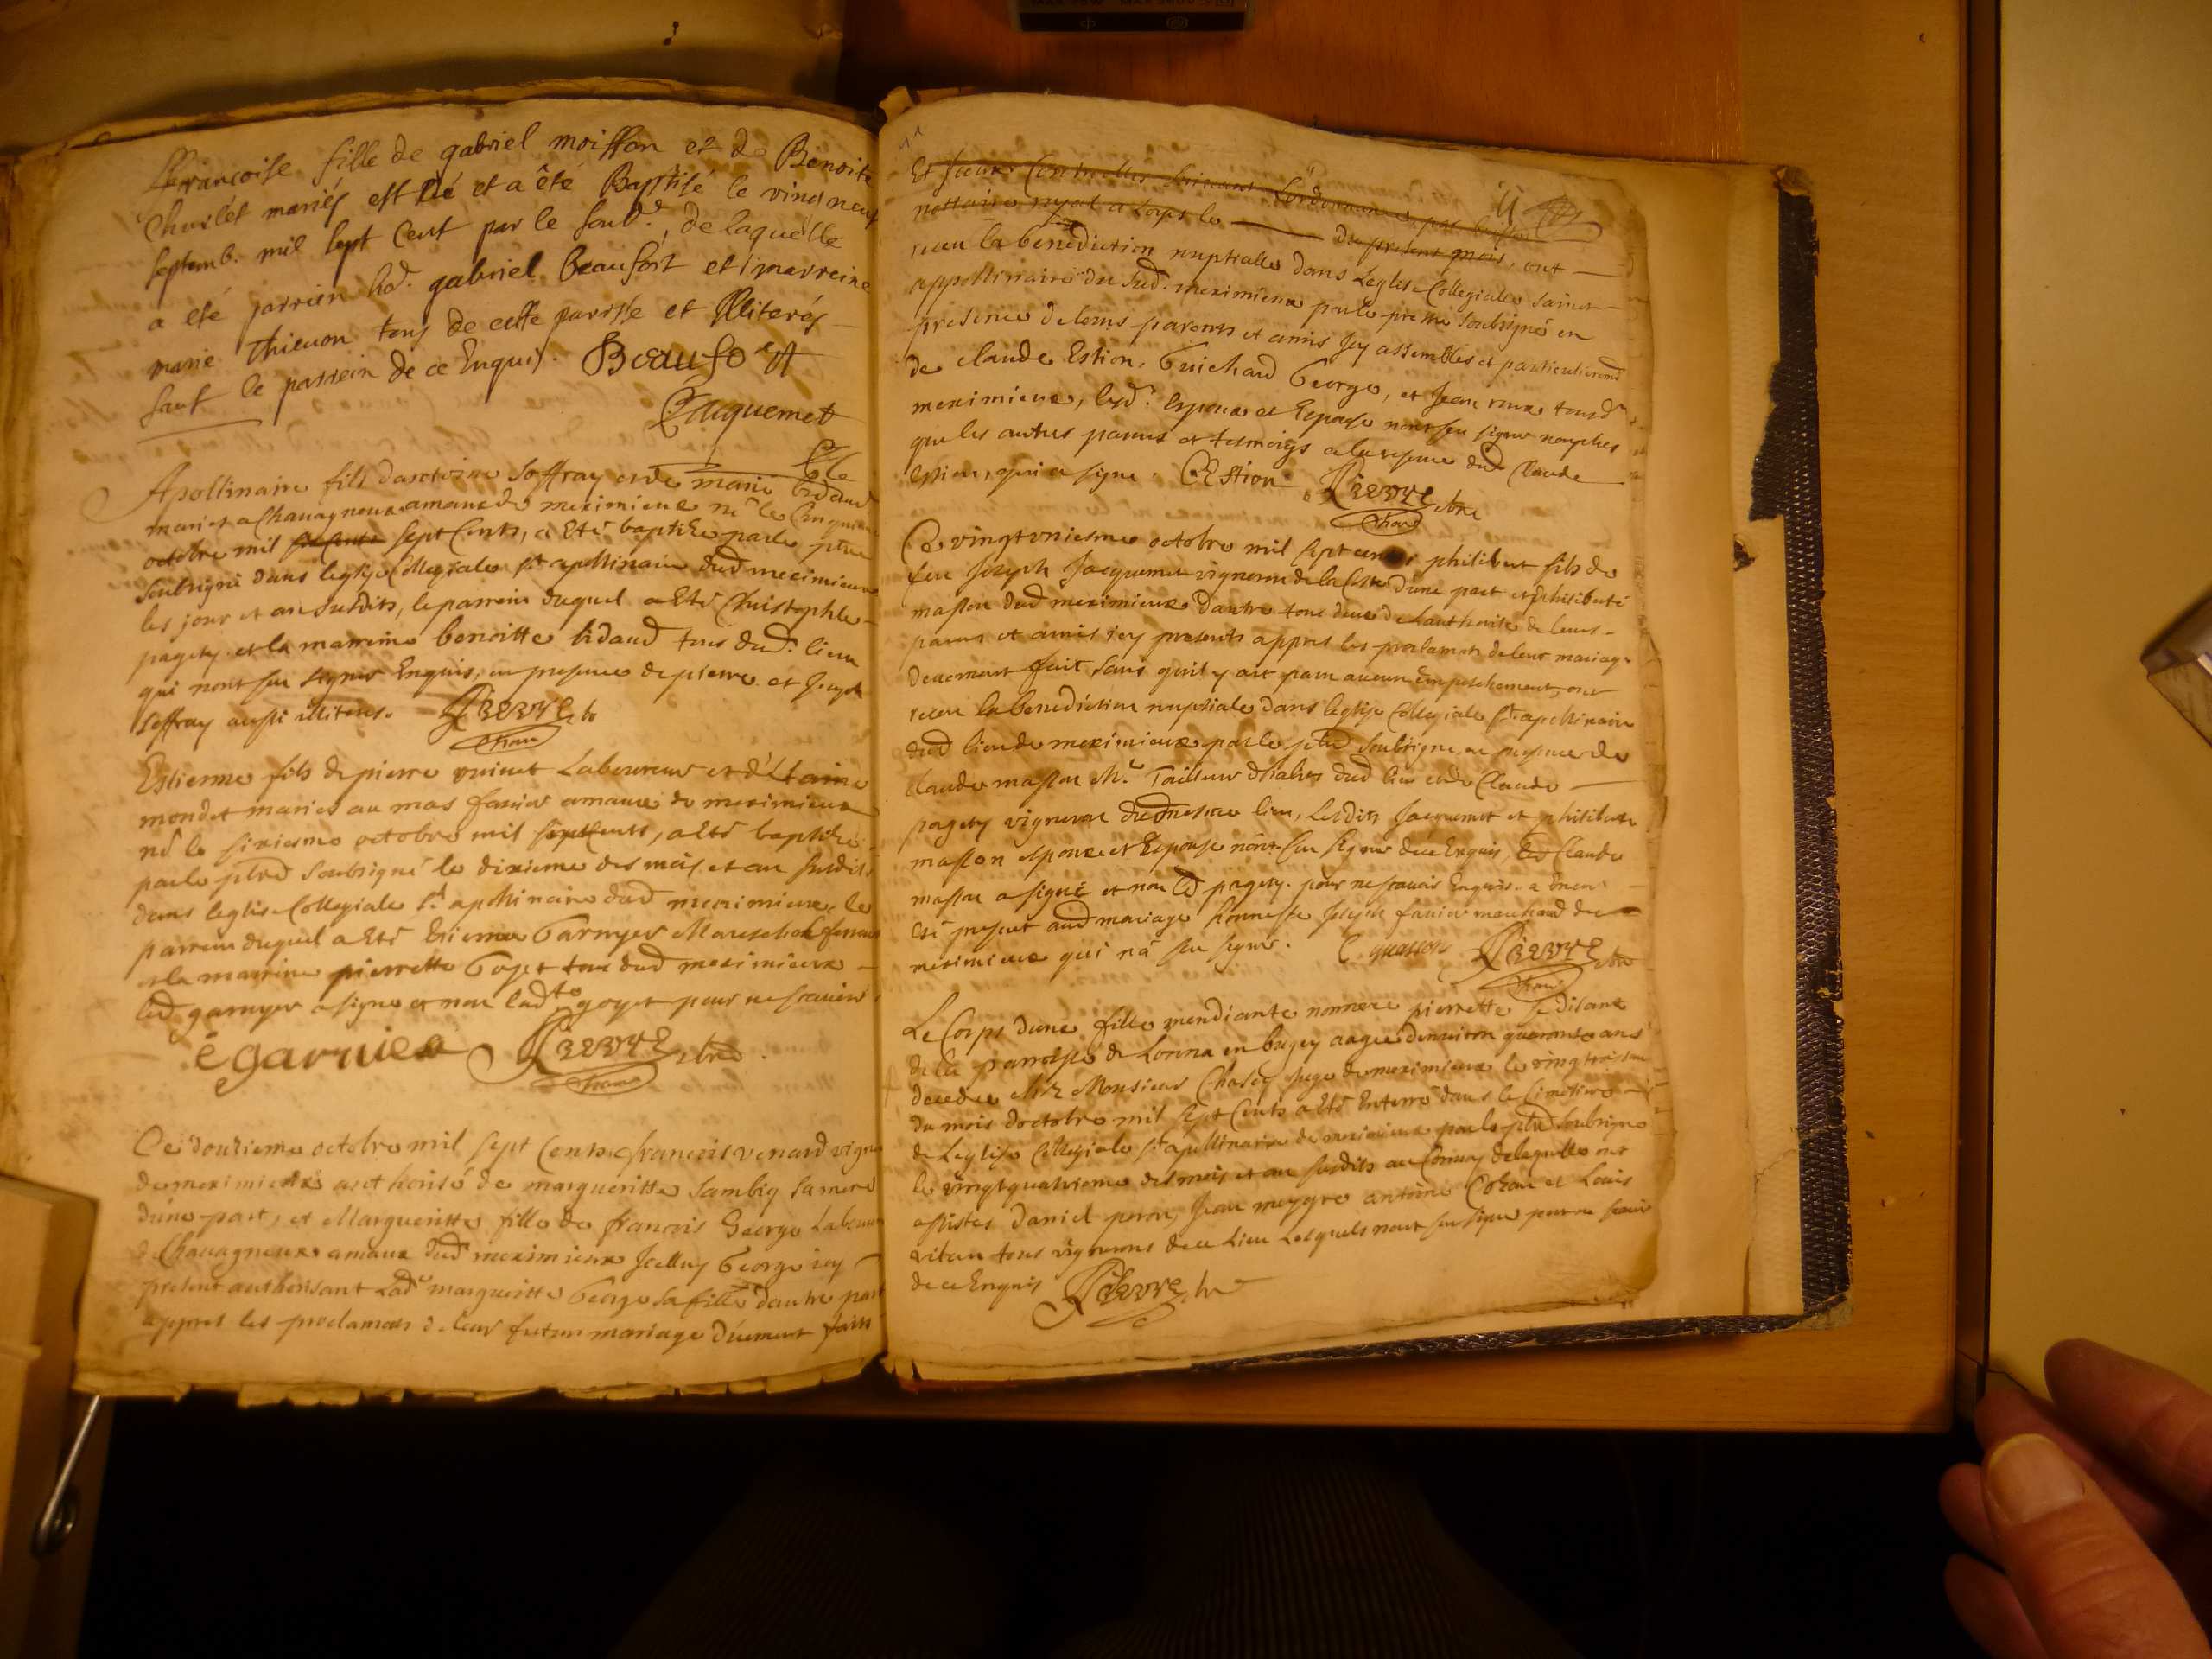 françoise fille de gabriel moisson et de Benoite
Churlet mariés est née et a été Baptisé le vind neuf
septemb. mil sept Cent par le soub.é, de laquelle
a été parrein hd. gabriel Beaufort et marreine
marie Thieuon tous de cette parroisse et illiterés
sauf le parrein de ce Enquis. Beaufort
Apollinaire fils dantoine soffray et de marie bidaud
maries a Chavagneux amanx de meximieux né le Cinquieme
octobre mil sept Cents, a Eté baptize par le ptre
soubsigné dans leglize Collegiale st apollinaire dud meximieux
les jour et an susdits, le parrein duquel a Eté Christophle
pagety et la marreine benoitte bidaud tous dud. lieu
qui nont sceu signer Enquis, en presence de pierre et Joseph
soffray aussi illiteres.
Estienne fils de pierre Laboureur et d'Etaine
mondet maries au mas favier amanx de meximieux
né le sixiesme octobre mil sept Cents, a Eté baptize
par le ptre soubsigné le dixieme des mois et an susdits
dans leglise Collegiale st apollinaire dud meximieux, le
parrein duquel a Eté Etienne Garnyer Mareschal ferrant
et la marrine pierrette Goyet tous dud meximieux
led garnyer a signe et non ladte goyet pour ne scavoir
e garnier
Ce douzieme octobre mil sept Cents francois venard vigne
de meximieux authorisé de margueritte Sambig sa mere
d'une part, et Margueritte fille de francois George Labour
de Chavagneux amanx dud meximieux Jcelluy George icy
present authorisant Lade margueritte George sa fille d'autre part
appres les proclamaons de leur futur mariage düement faits
11
nottaire royal
du present mois, ont
receu la benediction nuptialle dans Leglise Collegialle sainct
appollinaire du sud. meximieux par le prestre soubsigné en
presence de leurs parents et amis Jcy assemblés et particulierement
de claude Estion, Guichard George, et Jean roux tous dud
meximieux, lesd. Espoux et Espouse nont sceu signer non plus
que les autres parens et tesmoings a la reserve dud Claude
Estion, qui a signe. CEstion
Ce vingt vniesme octobre mil sept cents philibert fils de
feu Joseph Jacquemet vigneron de la Coste d'une part et philiberte
masson dud meximieux d'autre tous deux de Lauthorité de leurs
parens et amis icy presents appres les proclamaons de leur mariage
deuement fait sans quil y ait paru aucun Empeschement, ont
receu la benediction nuptiale dans leglise Collegiale st apollinaire
dud lieu de meximieux par le ptre soubsigne, en presence de
claude masson Me Tailleur d'habits dud lieu et de Claude
pagety vigneron du mesme lieu, Lesdits Jacquemet et philiberte
masson espoux et Espouse n'ont sceu signer de ce Enquis, led Claude
masson a signé et non led pagety pour ne scavoir Enquis. a Encor
Eté present aud mariage honneste Joseph favier marchand de
meximieux qui n'a sceu signer. C masson
Le Corps d'une fille mendiante nommee pierrette se disant
de la parroisse de Lonna en bugey aagee denviron quarante ans
decedee chez Monsieur Chasey Juge de meximieux le vingt troisieme
du mois d'octobre mil sept Cents a Eté Enterré dans le Cimetiere
de Leglise Collegiale st apollinaire de meximieux par le ptre soubsigne
le vingtquatrieme des mois et an susdits au Convoy de laquelle ont
assistes Daniel peron, Jean meygre antoine Cohan et Louis
vitan tous vignerons de ce Lieu Lesquels nont sceu signe pour ne scavoir
de ce Enquis